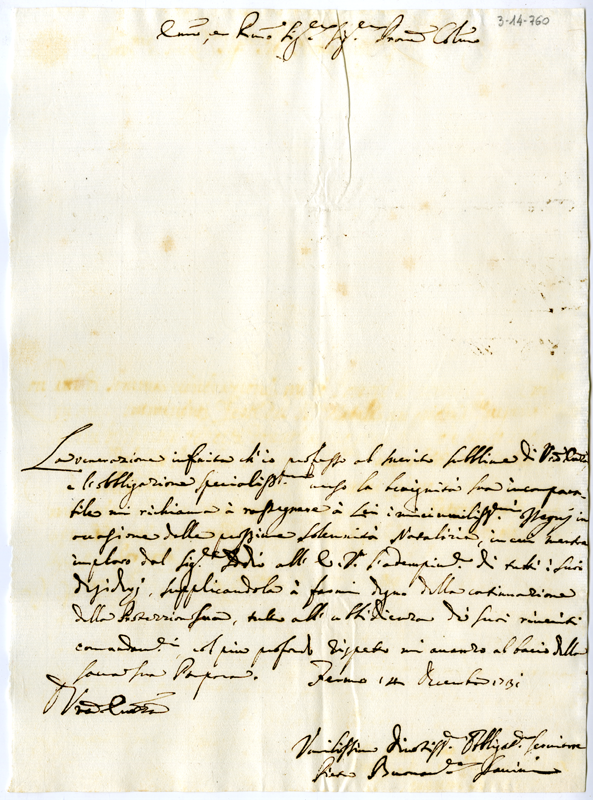 3-14-760
Emo, e Rmo Sig.re Sig.re Pron Colmo
La venerazione infinita ch'io professo al merito sublime di Vra Emza
e le obbligazioni specialissime verso la benignità sua incompara-
bile mi richiama à rassegnare à Lei i miei umilissi. ossequj in
occasione della prossima Solennità Natalizia, in cui mentre
imploro dal Sig.re Iddio all' E. V. l'adempim.to di tutti i suoi
desiderj, supplicandola à farmi degno della continuazione
della Protezzion sua, tutto all' ubbidienza de' suoi riveriti
comandam.ti col più profondo rispetto mi avanzo al bacio della
sacra sua Porpora. Fermo 14 Decembre 1731
Vra Emza
Umilissimo Divotiss.o Obbligat.o Servitore